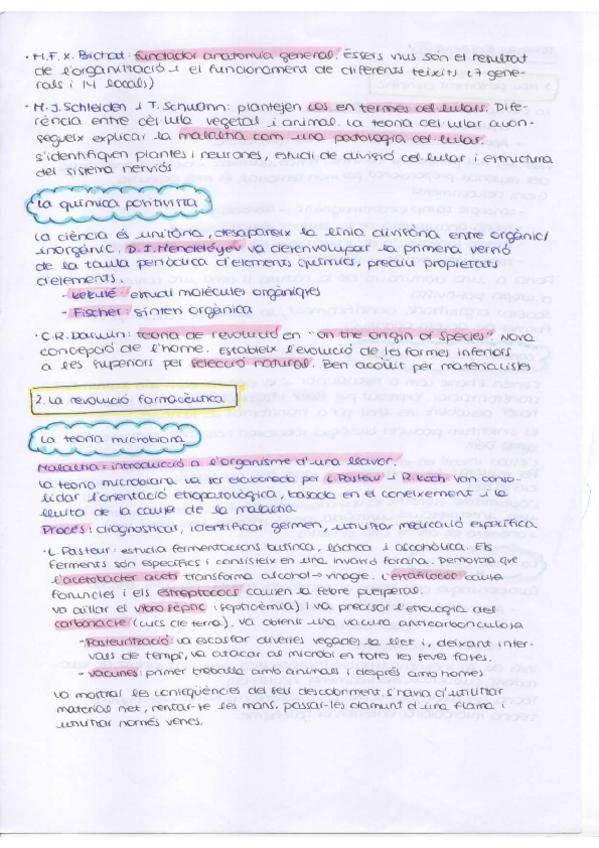 · M.F.X. Bichat: fundador anatomia general. Éssers vius són el resultat
de l'organització i el funcionament de diferents teixits (7 gene-
rals i 14 locals)
· M.J. Schleiden i T. Schwann: plantejen cos en termes cel·lulars. Dife-
rència entre cèl·lula vegetal i animal. La teoria cel·lular acon-
segueix explicar la malaltia com una patologia cel·lular.
S'identifiquen plantes i neurones, estudi de divisió cel·lular i estructura
del sistema nerviós
La química positivista
La ciència és unitària, desapareix la línia divisòria entre orgànic/
inorgànic. D.I. Mendeléyev va desenvolupar la primera versió
de la taula periòdica d'elements químics, prediu propietats
d'elements.
- Kekulé: estudi molècules orgàniques
- Fischer: síntesi orgànica
· C.R. Darwin: teoria de l'evolució en "On the origin of species". Nova
concepció de l'home. Estableix l'evolució de les formes inferiors
a les superiors per selecció natural. Ben acollit per materialistes
2. La revolució farmacèutica
La teoria microbiana
Malaltia = introducció a l'organisme d'una llavor.
La teoria microbiana va ser elaborada per L. Pasteur i R. Koch. Van conso-
lidar l'orientació etiopatològica, basada en el coneixement i la
lluita de la causa de la malaltia
Procés: diagnosticar, identificar germen, utilitzar medicació específica
· L. Pasteur: estudia fermentacions butírica, làctica i alcohòlica. Els
ferments són específics i consisteix en una invasió forana. Demostra que
l'acetobacter aceti transforma alcohol → vinagre. L'estafilococ causa
foruncles i els estreptococs causen la febre puerperal.
Va aïllar el vibrio sèptic (septicèmia) i va precisar l'etiologia del
carboncle (cucs de terra). Va obtenir una vacuna anticarbonculosa
- Pasteurització: va escalfar diverses vegades la llet i, deixant inter-
vals de temps, va atacar al microbi en totes les seves fases.
- Vacunes: primer treballa amb animals i després amb homes
Va mostrar les conseqüències del seu descobriment, s'havia d'utilitzar
material net, rentar-te les mans, passar-les damunt d'una flama i
utilitzar només venes.